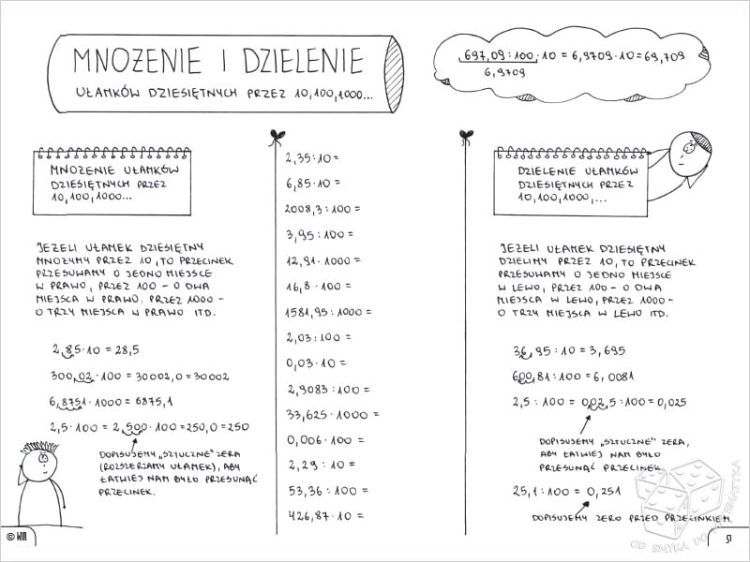 MNOŻENIE I DZIELENIE
UŁAMKÓW DZIESIĘTNYCH PRZEZ 10,100,1000...
697,09:100·10 = 6,9709·10=69,709
6,9709
MNOŻENIE UŁAMKÓW
DZIESIĘTNYCH PRZEZ
10,100,1000...
JEŻELI UŁAMEK DZIESIĘTNY
MNOŻYMY PRZEZ 10, TO PRZECINEK
PRZESUWAMY O JEDNO MIEJSCE
W PRAWO, PRZEZ 100 - O DWA
MIEJSCA W PRAWO, PRZEZ 1000 -
O TRZY MIEJSCA W PRAWO ITD.
2,85·10 = 28,5
300,02·100 = 30002,0 = 30002
6,8751·1000 = 6875,1
2,5·100 = 2,500·100=250,0=250
DOPISUJEMY „SZTUCZNE” ZERA
(ROZSZERZAMY UŁAMEK), ABY
ŁATWIEJ NAM BYŁO PRZESUNĄĆ
PRZECINEK.
2,35:10=
6,85·10=
2008,3:100=
3,95:100=
12,91·1000=
16,8·100=
1581,95:1000=
2,03:100=
0,03·10=
2,9083:100=
33,625·1000=
0,006·100=
2,29:10=
53,36:100=
426,87·10=
DZIELENIE UŁAMKÓW
DZIESIĘTNYCH PRZEZ
10,100,1000,...
JEŻELI UŁAMEK DZIESIĘTNY
DZIELIMY PRZEZ 10, TO PRZECINEK
PRZESUWAMY O JEDNO MIEJSCE
W LEWO, PRZEZ 100 - O DWA
MIEJSCA W LEWO, PRZEZ 1000 -
O TRZY MIEJSCA W LEWO ITD.
36,95:10=3,695
600,81:100=6,0081
2,5:100=002,5:100=0,025
DOPISUJEMY „SZTUCZNE” ZERA,
ABY ŁATWIEJ NAM BYŁO
PRZESUNĄĆ PRZECINEK.
25,1:100=0,251
DOPISUJEMY ZERO PRZED PRZECINKIEM.
OD SMYKA DO
© WR
9